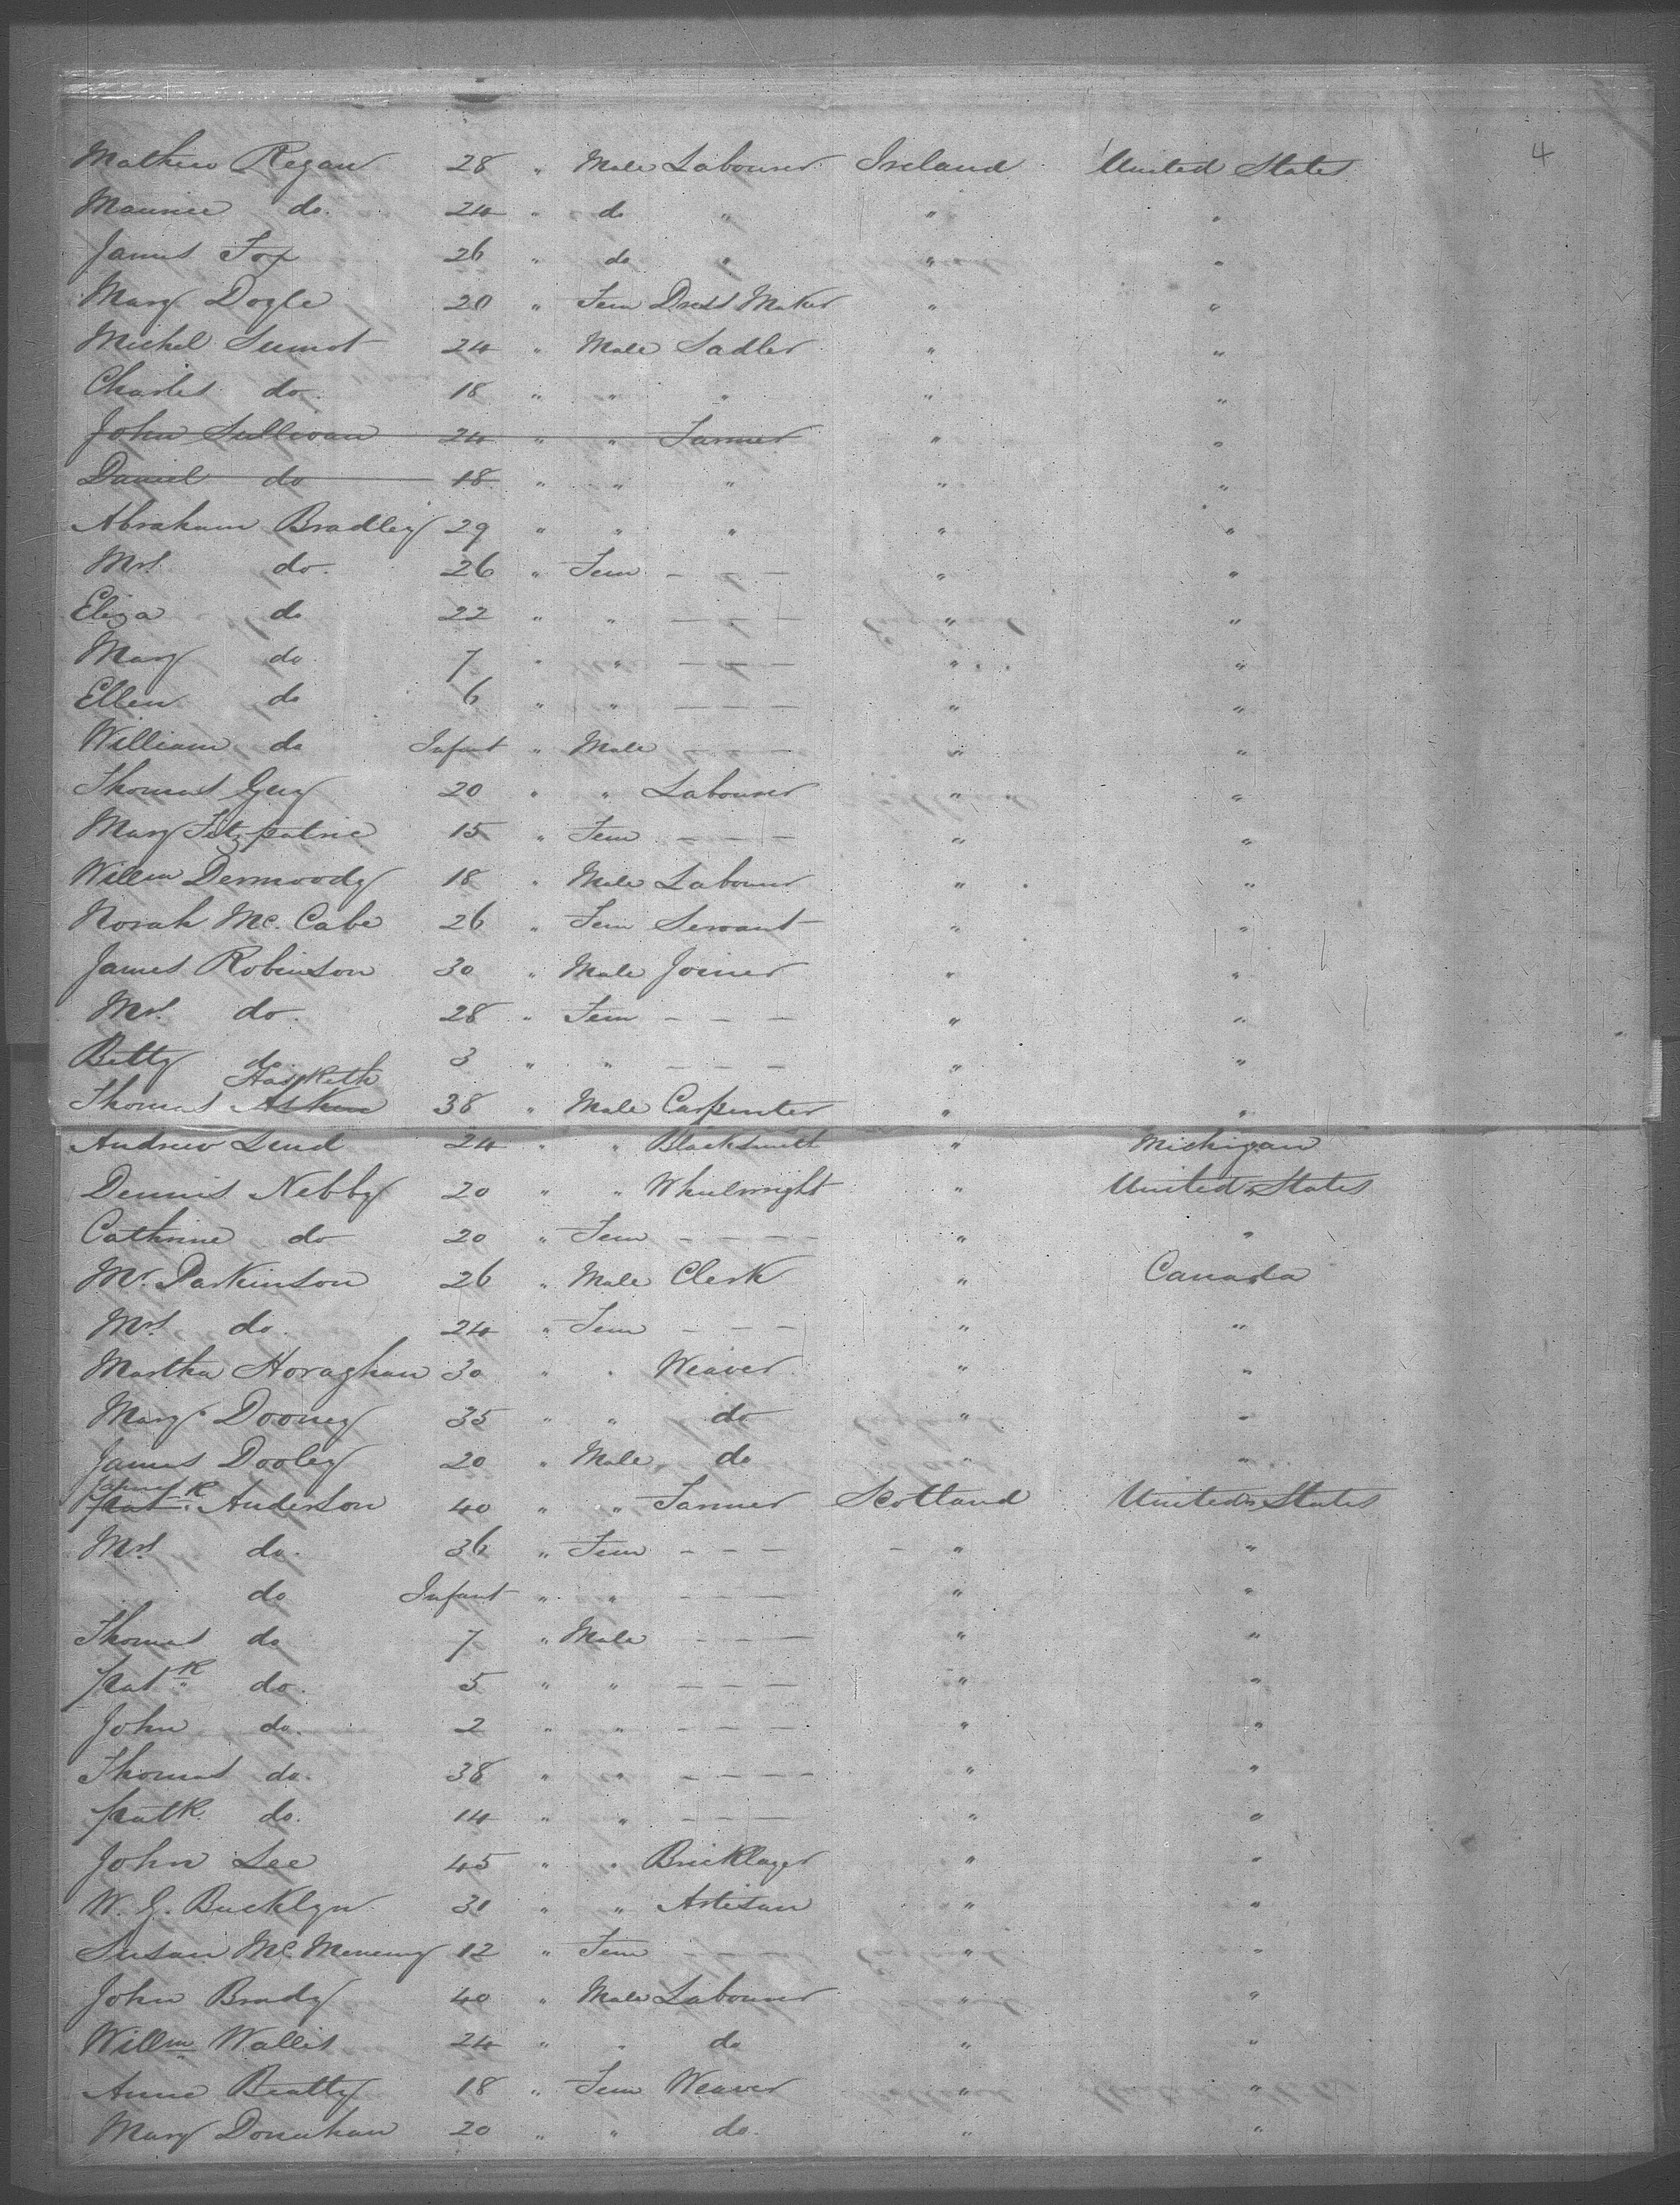 4
Mathew Regan 28 " Male Labourer Ireland United States
Maurice do. 24 " do " " "
James Fox 26 " do " " "
Mary Dogle 20 " Fem Dress Maker " "
Michel Sumot 24 " Male Sadler " "
Charles do. 18 " " " " "
John Sullivan 24 " " Farmer " "
Daniel do 18 " " " " "
Abraham Bradley 29 " " " " "
Mrs. do. 26 " Fem — — — " "
Eliza do 22 " " — — — " "
Mary do. 7 " " — — — " "
Ellen do 6 " " — — — " "
William do Infant " Male — — — " "
Thomas Guy 20 " " Labourer " "
Mary Fitzpatric 15 " Fem — — — " "
Willm Dermoody 18 " Male Labourer " "
Norah Mc. Cabe 26 " Fem Servant " "
James Robinson 30 " Male Joiner " "
Mrs. do. 28 " Fem — — — " "
Betty do. 3 " " — — — " "
Hasketh
Thomas Askew 38 " Male Carpenter " "
Andrew Lend 24 " " Blacksmith " Michigan
Dennis Nebby 20 " " Wheelwright " United States
Cathrine do 20 " Fem — — — — " "
Mr. Parkinson 26 " Male Clerk " Canada
Mrs. do. 24 " Fem — — — " "
Martha Horaghan 30 " " Weaver " "
Mary Dooney 35 " " do " "
James Dooley 20 " Male do " "
James R
Pat. Anderson 40 " " Farmer Scotland United States
Mrs. do. 36 " Fem — — — " "
do Infant " " — — — " "
Thomas do 7 " Male — — — " "
Patk do. 5 " " — — — " "
John do. 2 " " — — — " "
Thomas do. 38 " " — — — — " "
Patk. do. 14 " " — — — " "
John Lee 45 " " Bricklayer " "
W. G. Bucklyn 30 " " Artisan " "
Susan Mc. Menemy 12 " Fem — — — " "
John Brady 40 " Male Labourer " "
Willm Wallis 24 " " do " "
Anne Beatty 18 " Fem Weaver " "
Mary Donahan 20 " " do. " "